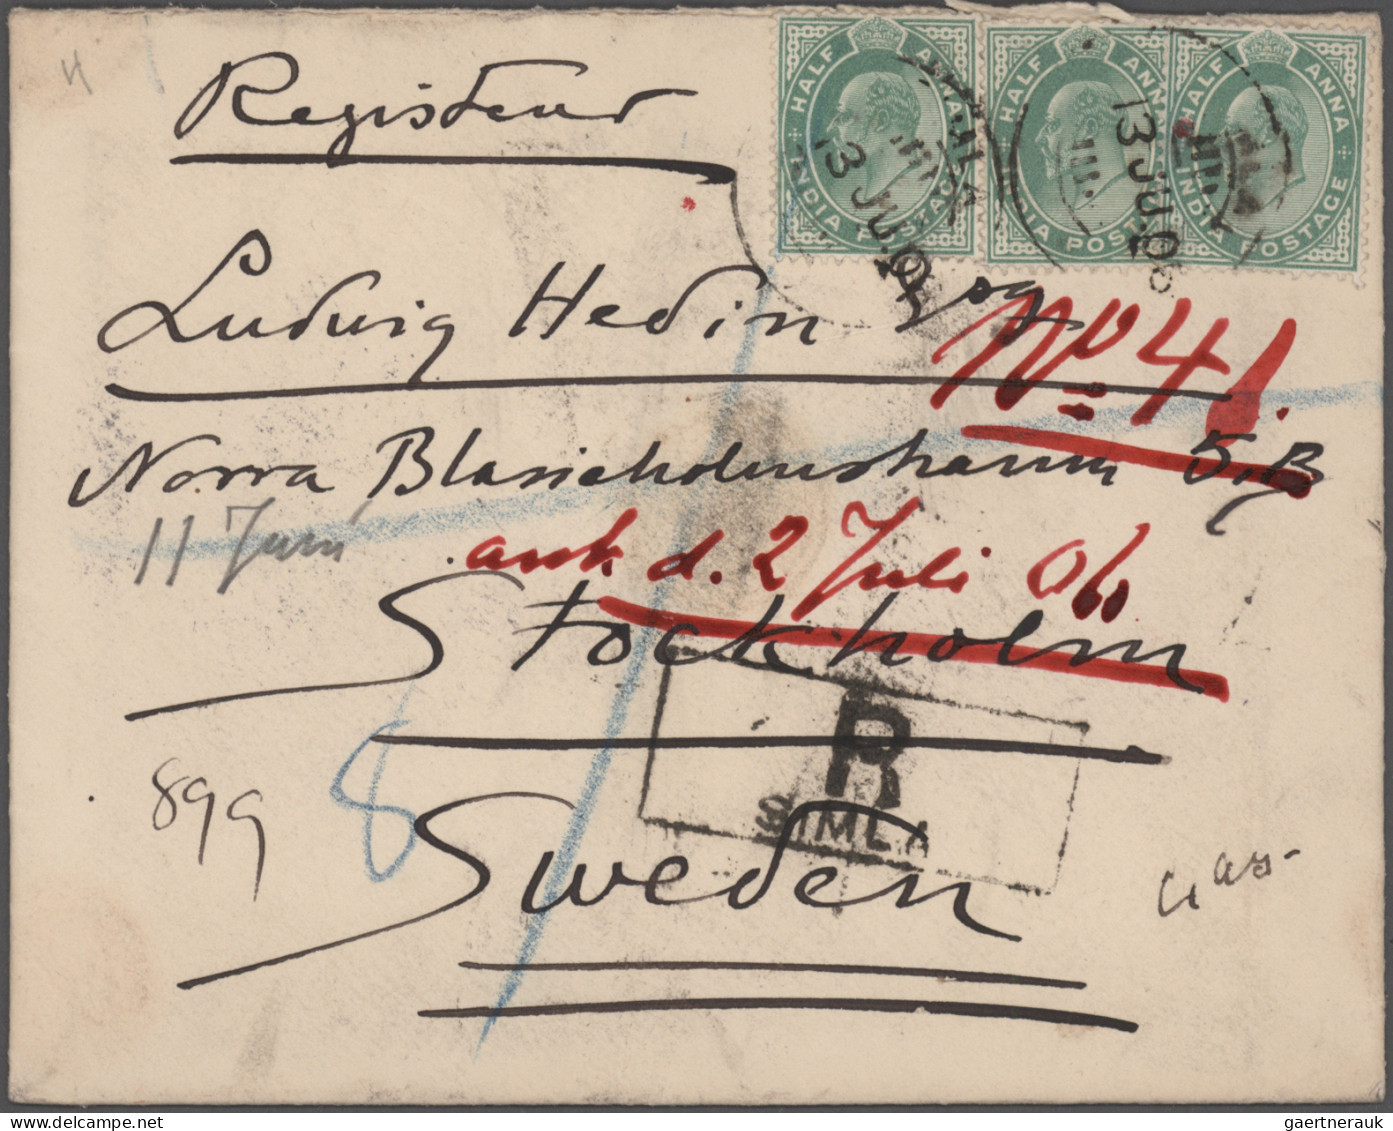 Registered
HALF ANNA
INDIA POSTAGE
HALF ANNA
INDIA POSTAGE
HALF ANNA
INDIA POSTAGE
SIMLA
13 JU. 06
13 JU. 06
Ludwig Hedin Esq
No 41.
Norra Blasieholmshamn 5, B
11 Juni
ank d. 2 Juli 06
Stockholm
R
SIMLA
8
899
Sweden
gaertnerauk